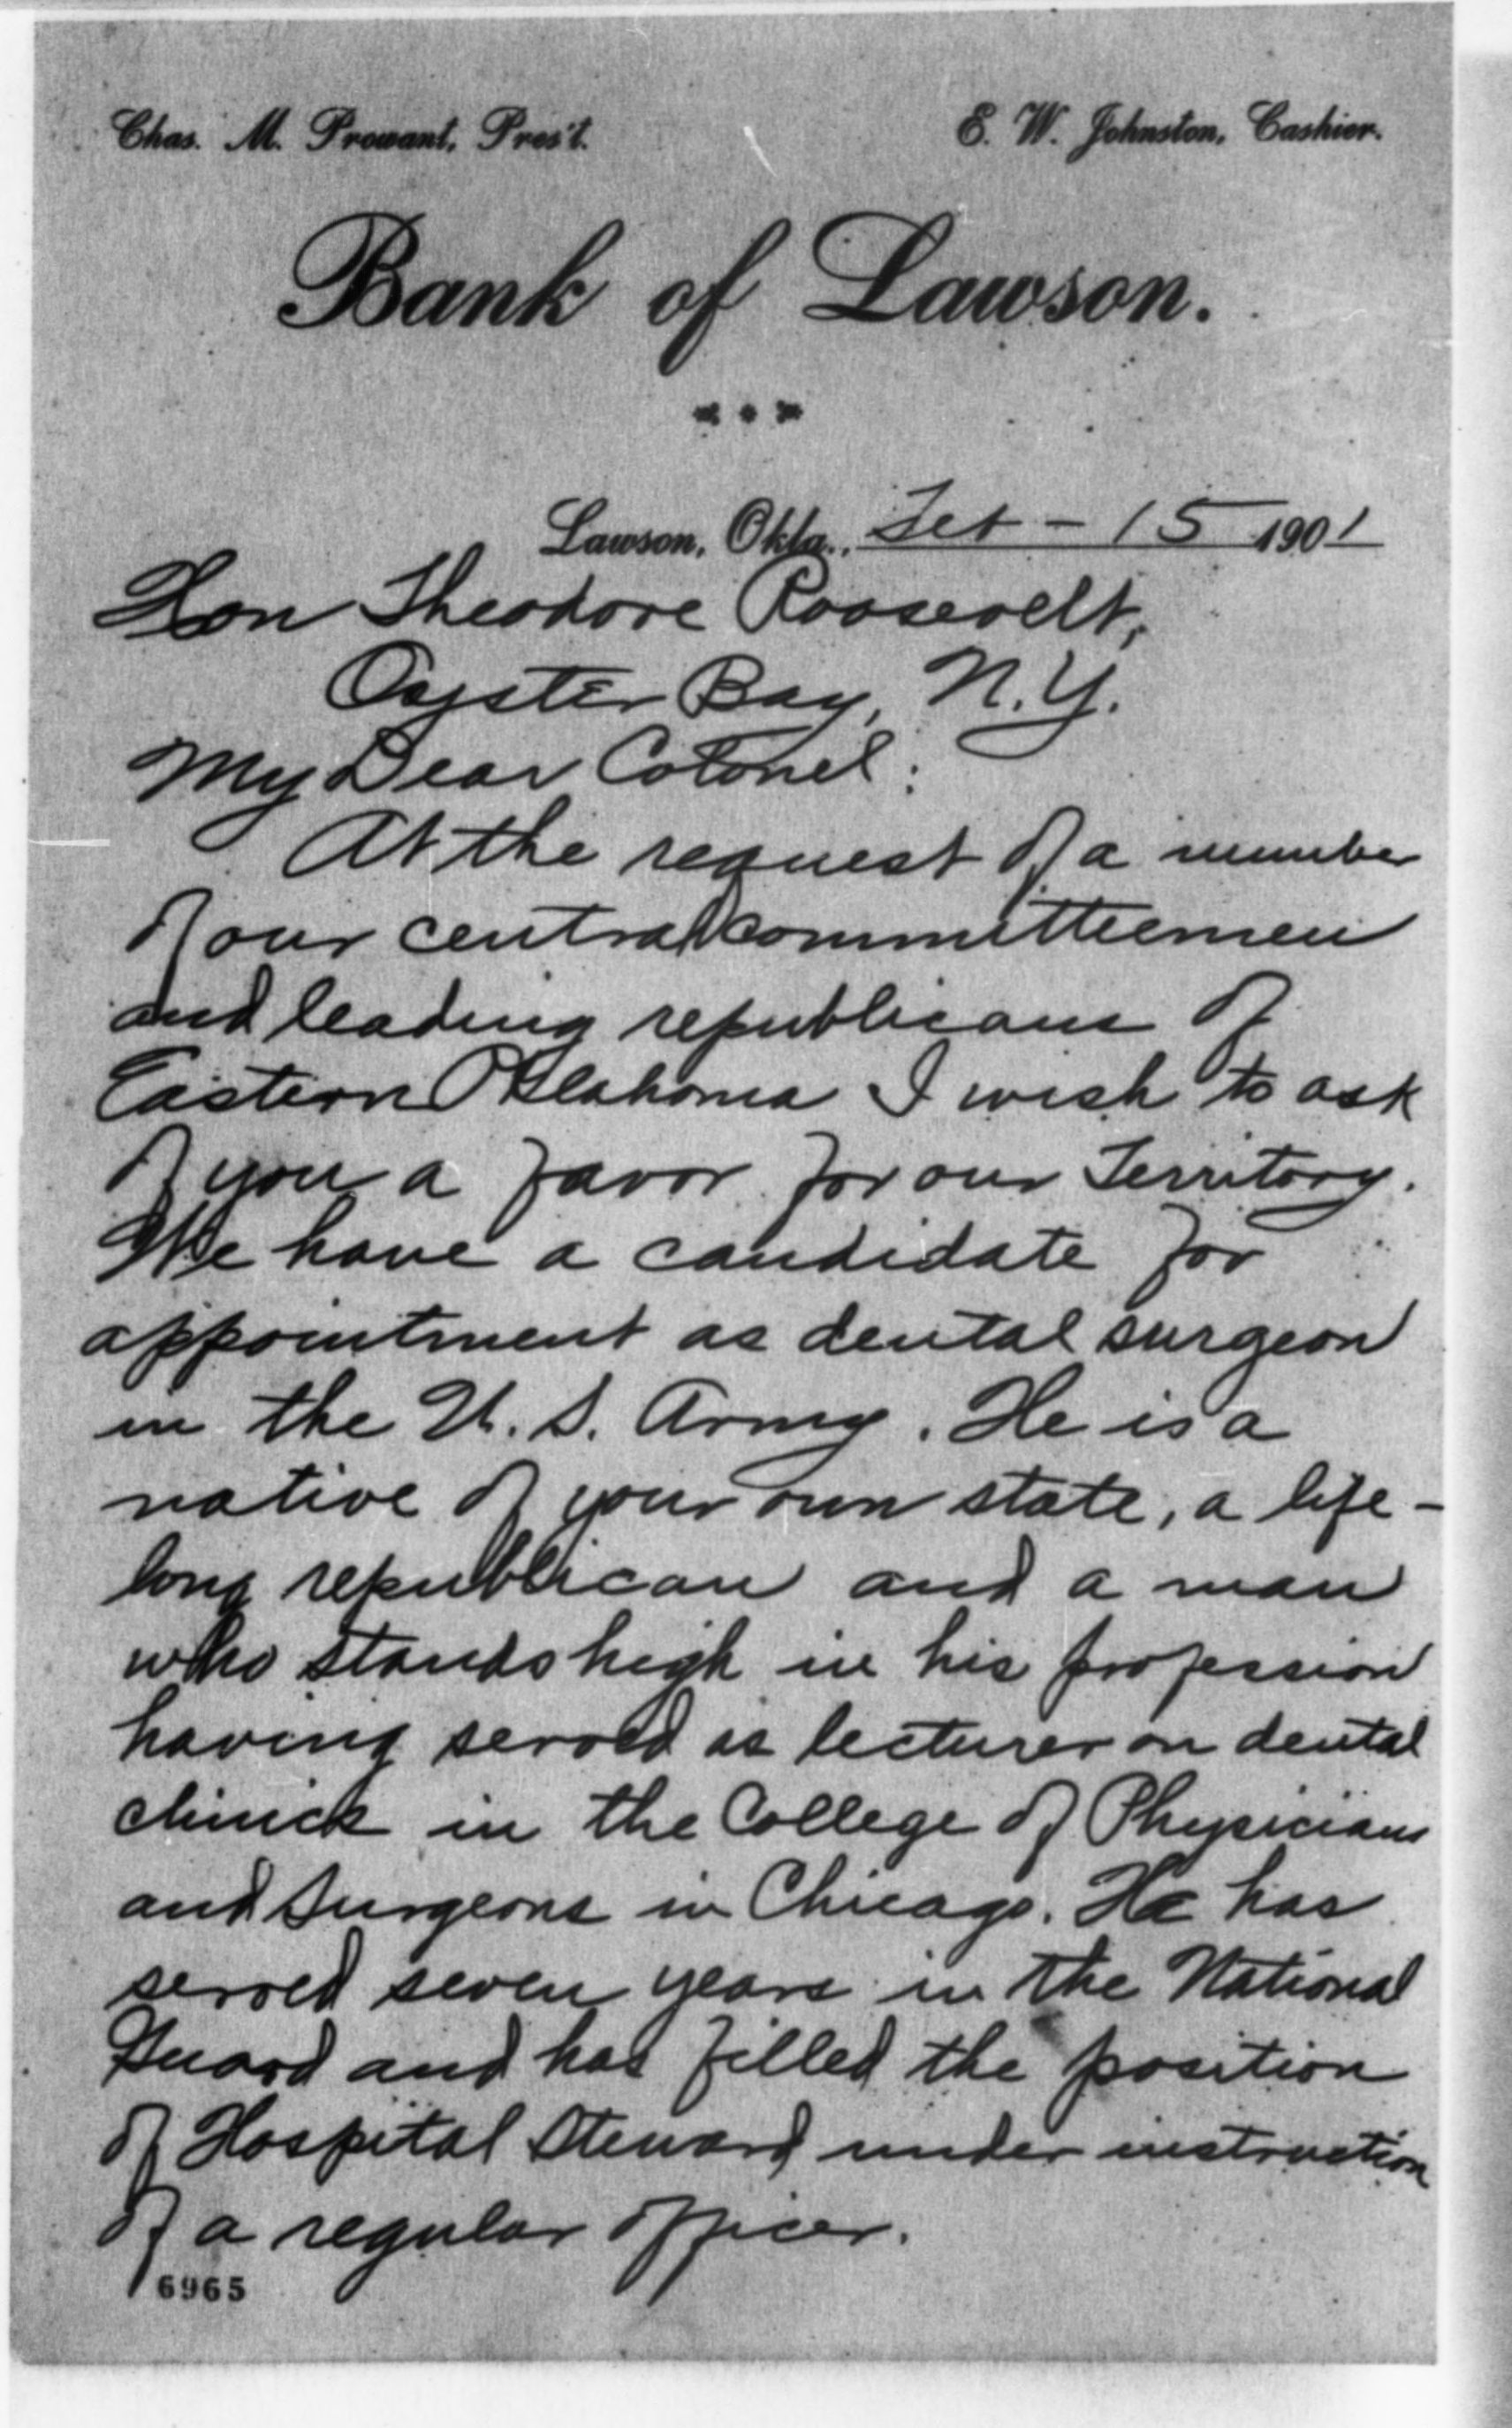 Chas. M. Prowant, Pres't. E. W. Johnston, Cashier.
Bank of Lawson.
Lawson, Okla., Feb - 15 1901
Hon Theodore Roosevelt,
Oyster Bay, N.Y.
My Dear Colonel:
At the request of a number
of our central committeemen
and leading republicans of
Eastern Oklahoma I wish to ask
of you a favor for our Territory.
We have a candidate for
appointment as dental surgeon
in the U. S. Army. He is a
native of your own state, a life-
long republican and a man
who stands high in his profession
having served as lecturer on dental
clinick in the College of Physicians
and Surgeons in Chicago. He has
served seven years in the National
Guard and has filled the position
of Hospital Steward under instruction
of a regular officer.
6965